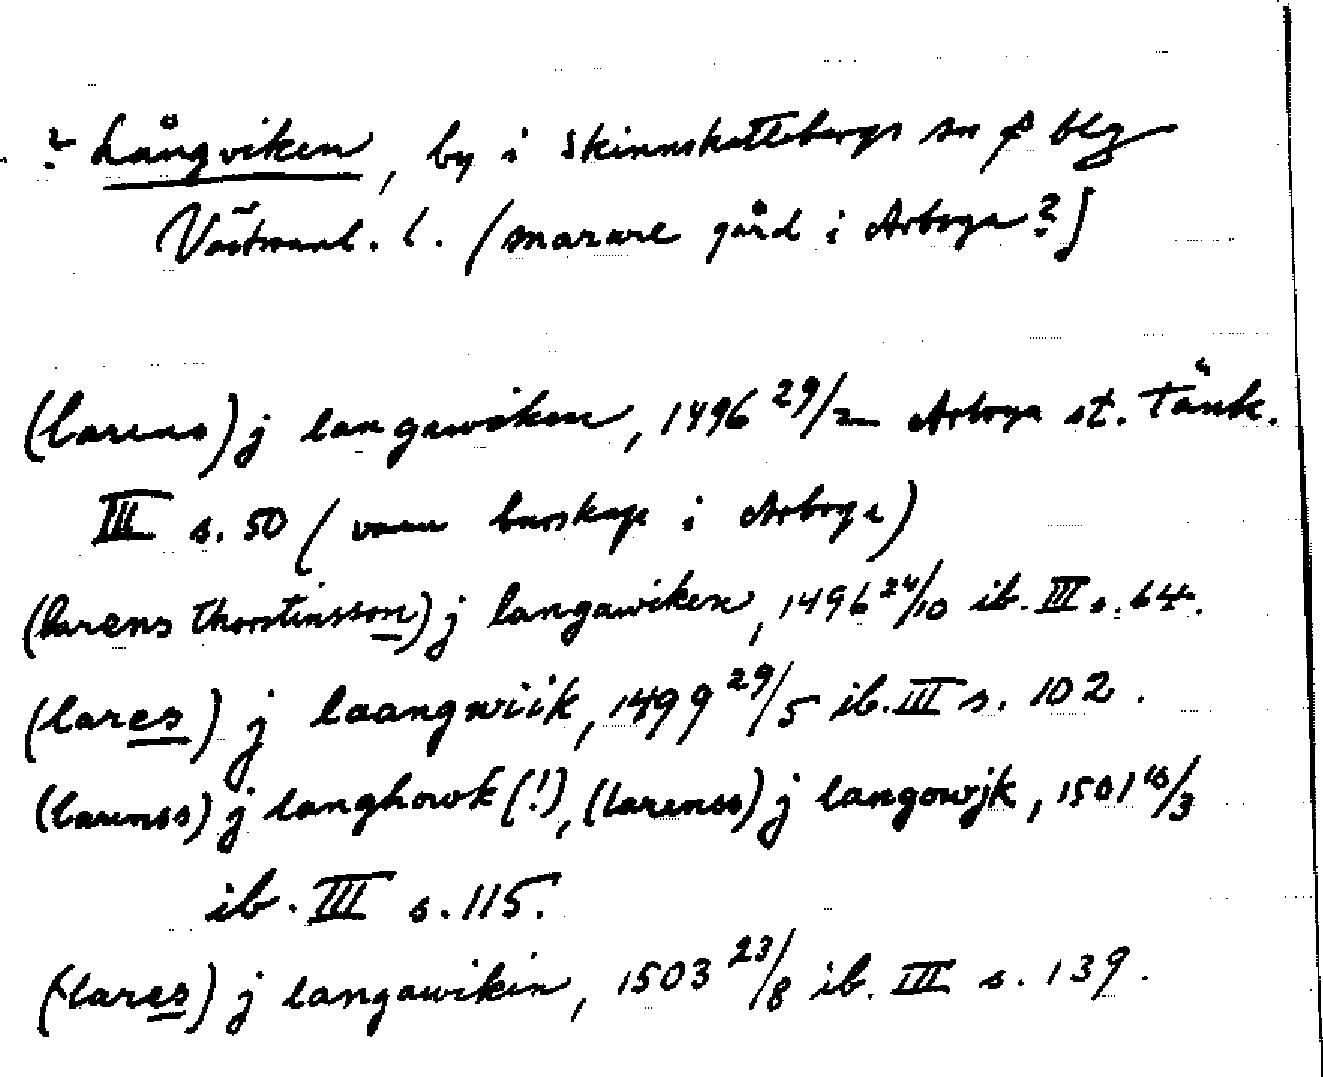 ? Långviken, by i Skinnskattebergs sn o blg
Västmanl. l. (snarare gård i Arboga?)
(larens) j langawiken, 1496 29/2 Arboga st. Tänk.
III s. 50 (vann burskap i Arboga)
(larens thorstinsson) j langawiken, 1496 24/10 ib. III s. 64.
(lares) j laangwiik, 1499 29/5 ib. III s. 102.
(larenss) j langhowk (!), (larenss) j langowjk, 1501 10/3
ib. III s. 115.
(lares) j langawikin, 1503 23/8 ib. III s. 139.